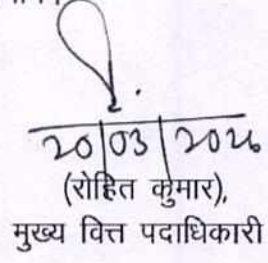 20/03/2026
(रोहित कुमार),
मुख्य वित्त पदाधिकारी